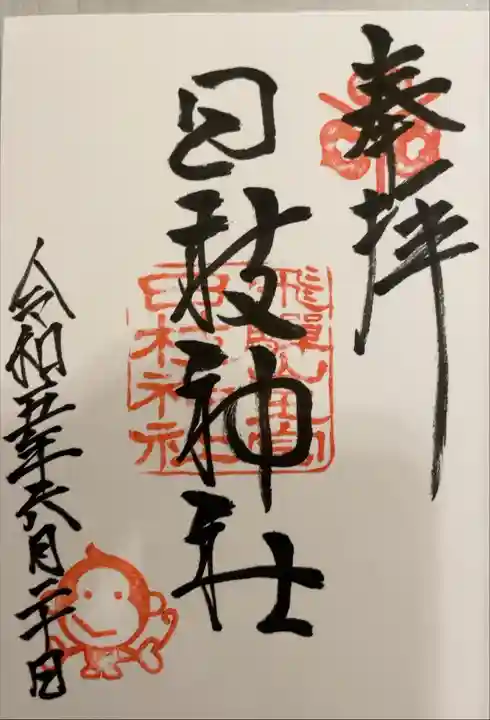 奉拝
飛騨山王宮
日枝神社
日枝神社
令和五年六月二十日